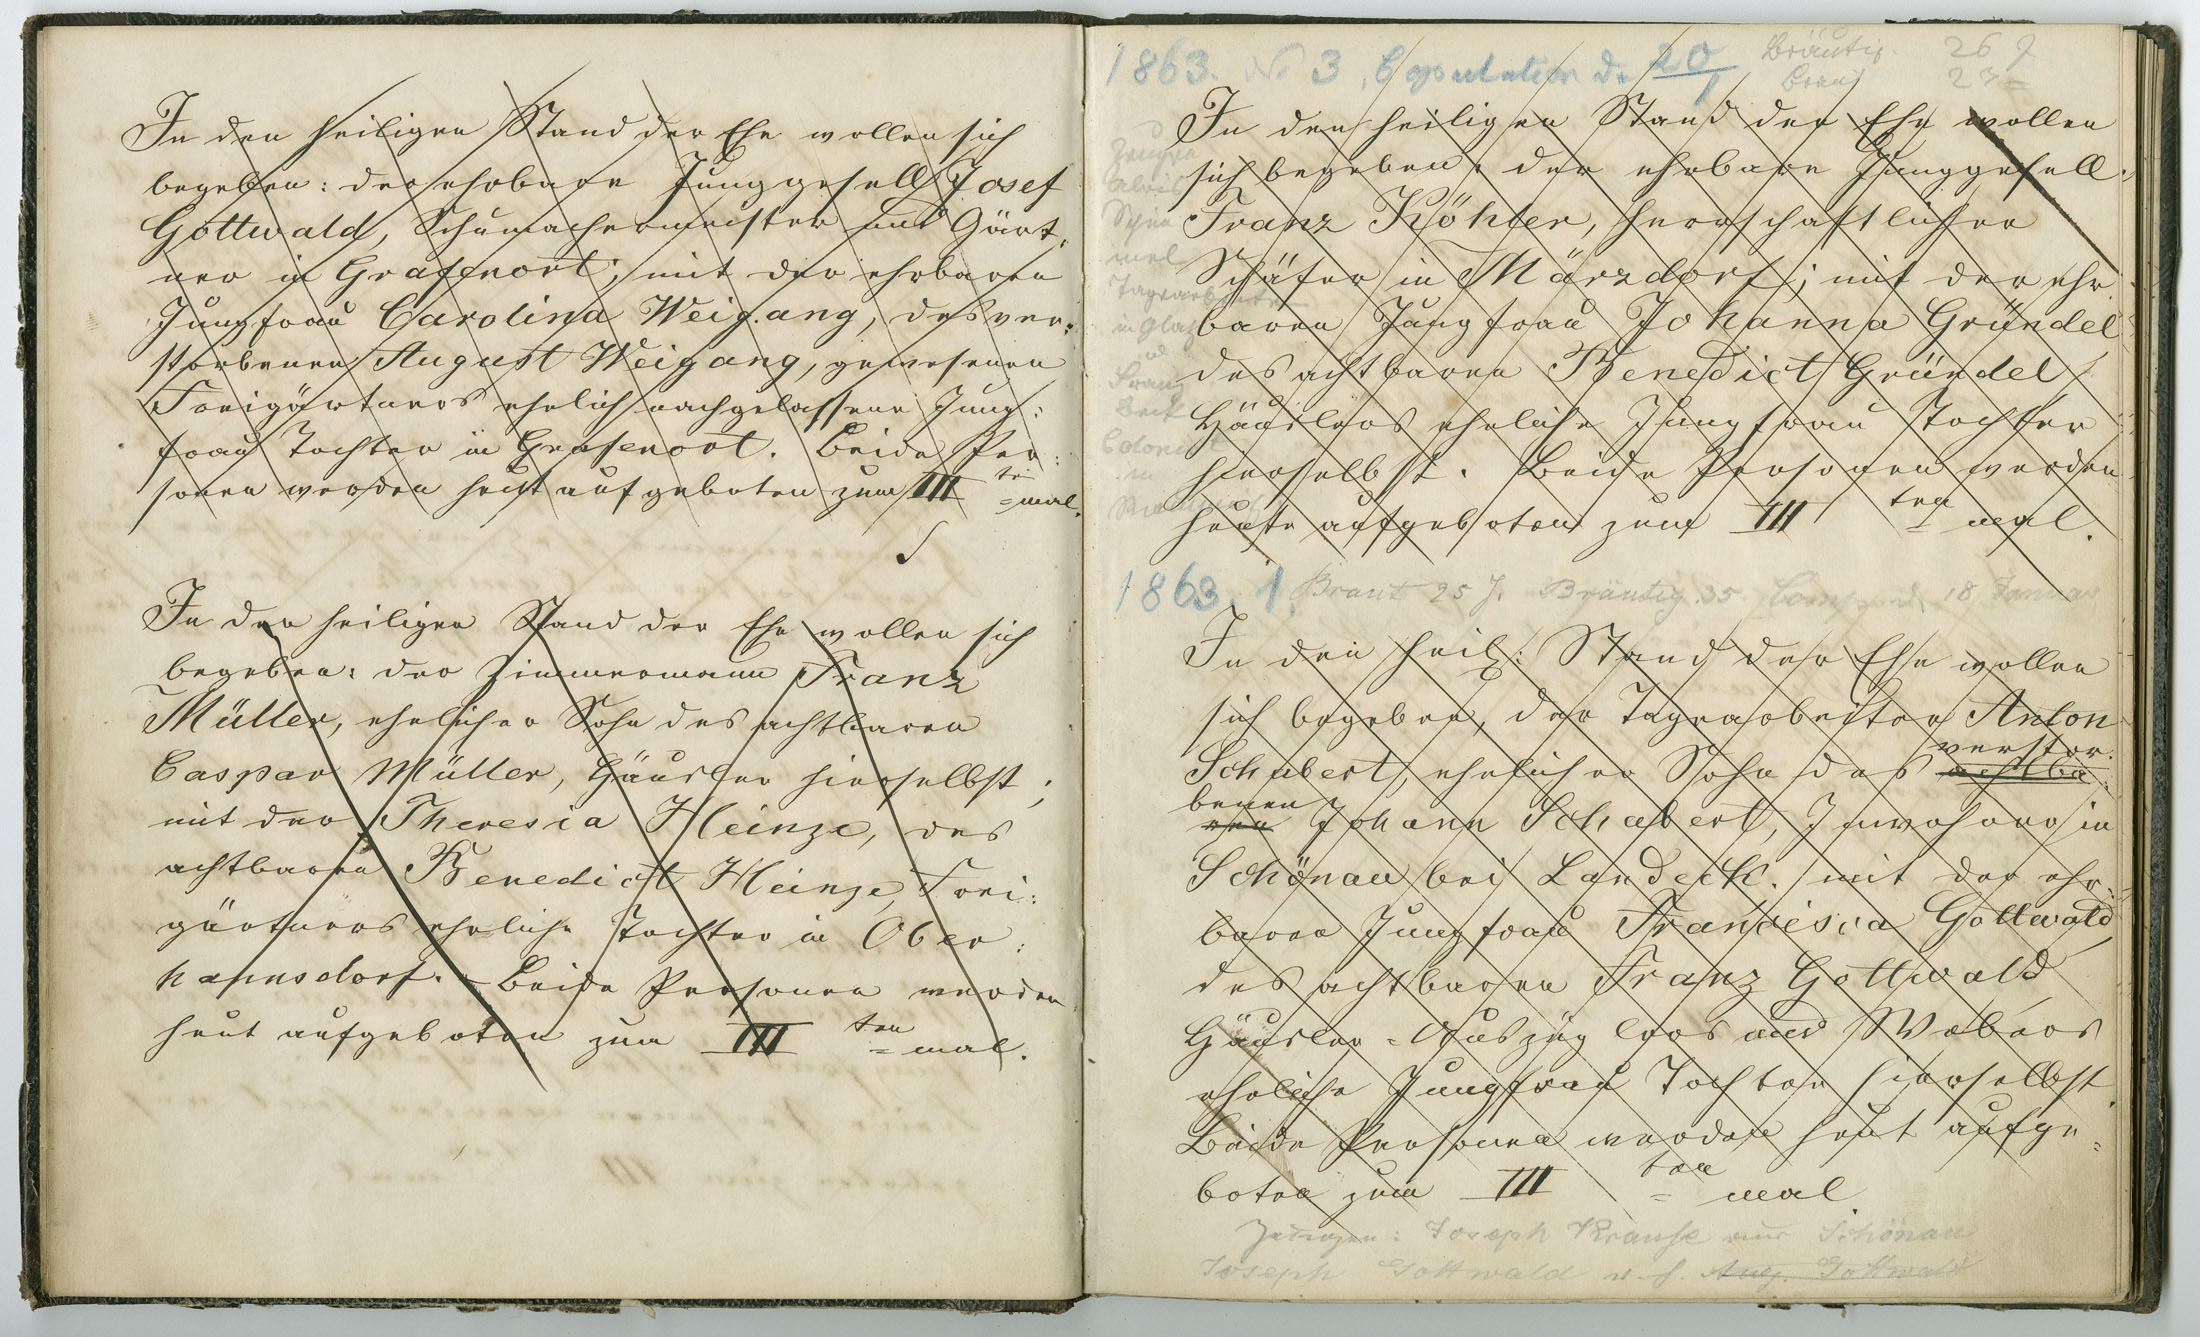 In den heiligen Stand der Ehe wollen sich
begeben: der ehrbare Junggesell Josef
Gottwald, Schumachermeister und Gärt,
ner in Grafenort; mit der ehrbaren
Jungfrau Carolina Weigang, des ver,
storbenen August Weigang, gewesenen
Freigärtners ehelich nachgelassene Jung:
frau Tochter in Grafenort. Beide Per:
sonen werden heut aufgeboten zum III ten = mal.
In den heiligen Stand der Ehe wollen sich
begeben: der Zimmermann Franz
Müller, ehelicher Sohn des achtbaren
Caspar Müller, Häusler hierselbst;
mit der Theresia Heinze, des
achtbaren Benedict Heinze, Frei:
gärtners eheliche Tochter in Ober:
hannsdorf. Beide Personen werden
heut aufgeboten zum III ten = mal.
1863. No 3. Copulation d. 20/1 Bräutig. 26 J
Braut 23 =
In den heiligen Stand der Ehe wollen
sich begeben: der ehrbare Junggesell:
Franz Köhler, herrschaftlicher
Schäfer in Märzdorf; mit der ehr
baren Jungfrau Johanna Gründel
des achtbaren Benedict Gründel
Häuslers eheliche Jungfrau Tochter
hierselbst. Beide Personen werden
heute aufgeboten zum III ten = mal.
Zeugen
Tagearbeiter
in Glaz
Franz
in
1863. 1. Braut 25 J. Bräutig. 35 18 Januar
In den heil: Stand der Ehe wollen
sich begeben, der Tagearbeiter Anton
Schubert, ehelicher Sohn des achtba: verstor:
ren benen Johann Schubert, Inwohners in
Schönau bei Landeck. mit der ehr:
baren Jungfrau Francisca Gottwald
des achtbaren Franz Gottwald
Häusler = Auszüglers und Webers
eheliche Jungfrau Tochter hierselbst.
Beide Personen werden heut aufge=
boten zum III ten = mal
Zeugen: Joseph Krause aus Schönau
Joseph Gottwald Aug. Gottwald